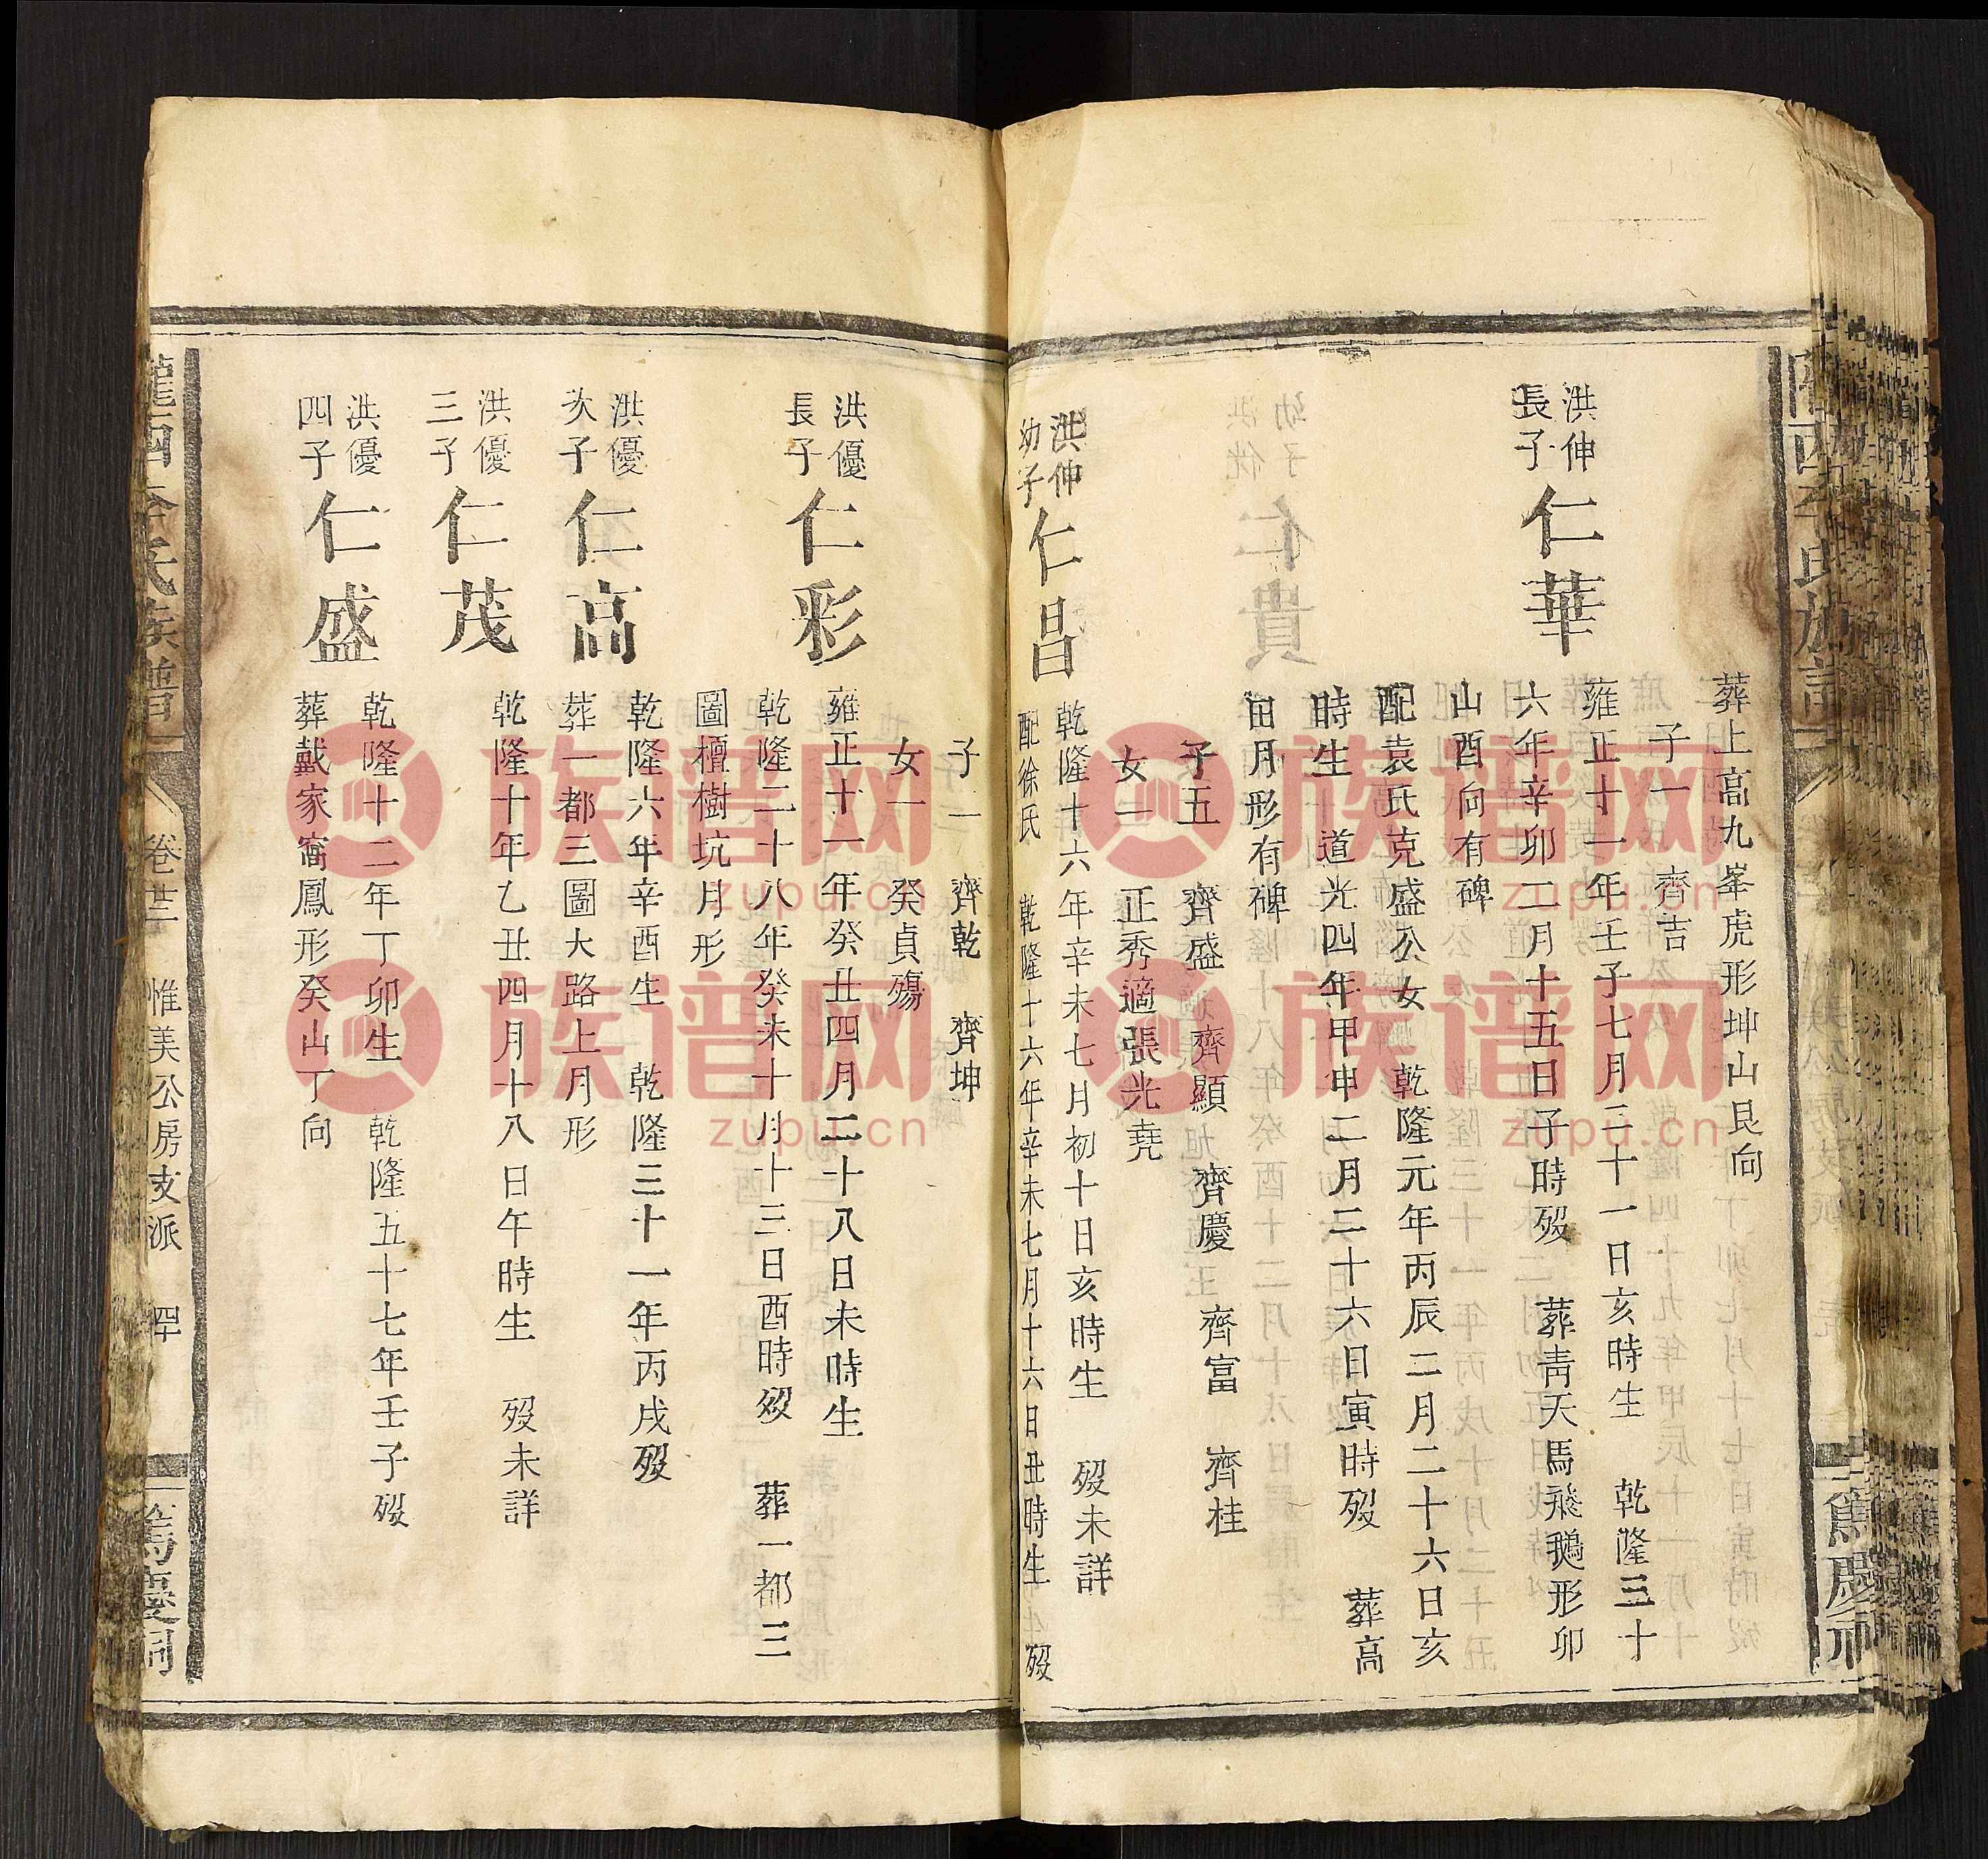 葬上高九峯虎形坤山艮向
子一 齊吉
洪伸
長子
仁華
雍正十一年壬子七月三十一日亥時生 乾隆三十
六年辛卯二月十五日子時歿 葬青天馬飛鵝形卯
山酉向有碑
配袁氏克盛公女 乾隆元年丙辰二月二十六日亥
時生 道光四年甲申二月二十六日寅時歿 葬高
田月形有碑
子五 齊盛 齊顯 齊慶 齊富 齊桂
女一 正秀適張光堯
洪伸
幼子
仁昌
乾隆十六年辛未七月初十日亥時生 歿未詳
配徐氏 乾隆十六年辛未七月十六日丑時生 歿
子二 齊乾 齊坤
女一 癸貞殤
洪優
長子
仁彩
雍正十一年癸丑四月二十八日未時生
乾隆二十八年癸未十月十三日酉時歿 葬一都三
圖櫃樹坑月形
洪優
次子
仁高
乾隆六年辛酉生 乾隆三十一年丙戌歿
葬一都三圖大路上月形
洪優
三子
仁茂
乾隆十年乙丑四月十八日午時生 歿未詳
洪優
四子
仁盛
乾隆十二年丁卯生 乾隆五十七年壬子歿
葬戴家窩鳳形癸山丁向
隴西李氏族譜
卷廿二
惟美公房支派
四十
篤慶祠
族谱网
zupu.cn
族谱网
zupu.cn
族谱网
zupu.cn
族谱网
zupu.cn